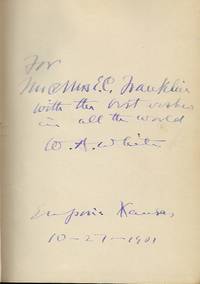 For
Mr & Mrs E.C. Franklin
with the best wishes
in all the world
W. A. White
Emporia Kansas
10-27-1901